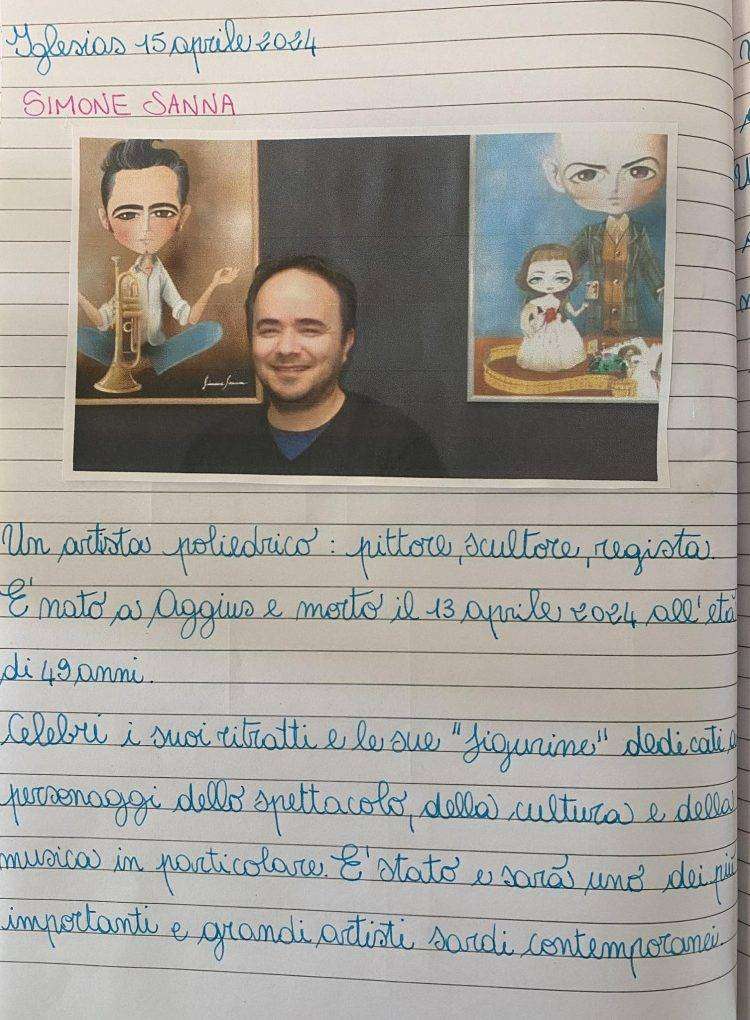 Iglesias 15 aprile 2024
SIMONE SANNA
Simone Sanna
Un artista poliedrico: pittore, scultore, regista.
E' nato a Aggius e morto il 13 aprile 2024 all'età
di 49 anni.
Celebri i suoi ritratti e le sue "figurine" dedicati a
personaggi dello spettacolo, della cultura e della
musica in particolare. E' stato e sarà uno dei più
importanti e grandi artisti sardi contemporanei.